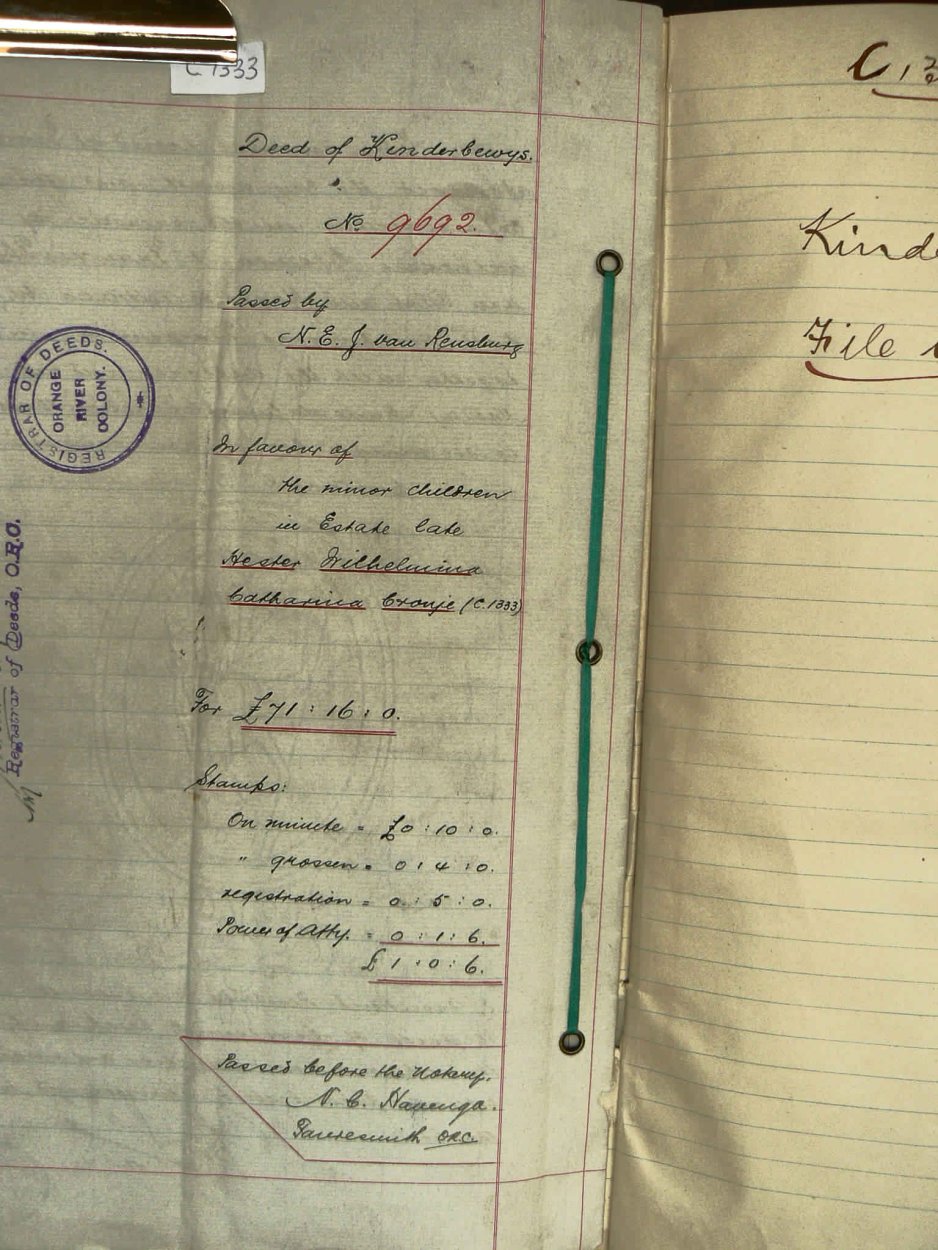 C 1333
Deed of Kinderbewys.
No 9692.
Passed by
N. E. J. van Rensburg
In favour of
the minor children
in Estate late
Hester Wilhelmina
Catharina Cronje (C.1333)
For £71 : 16 : 0.
Stamps:
On minute = £0 : 10 : 0.
" grossen = 0 : 4 : 0.
registration = 0 : 5 : 0.
Power of Atty. = 0 : 1 : 6.
£ 1 : 0 : 6.
Passed before the Notary.
N. C. Havenga.
Fauresmith ORC.
REGISTRAR OF DEEDS.
ORANGE
RIVER
COLONY.
Registrar of Deeds, O.R.C.
C,
Kinde
File